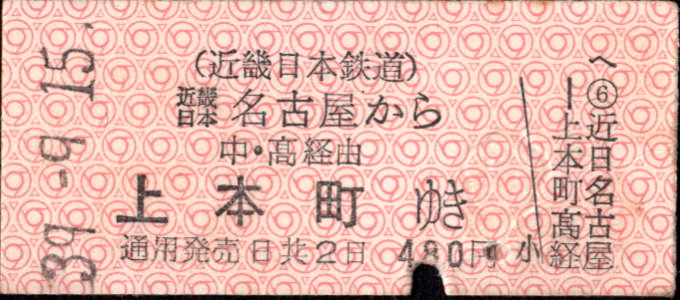 39.-9.15.
(近畿日本鉄道)
近畿日本 名古屋から
中・髙経由
上本町 ゆき
通用発売日共2日 480円
小
へ⑥近日名古屋
ー上本町髙経